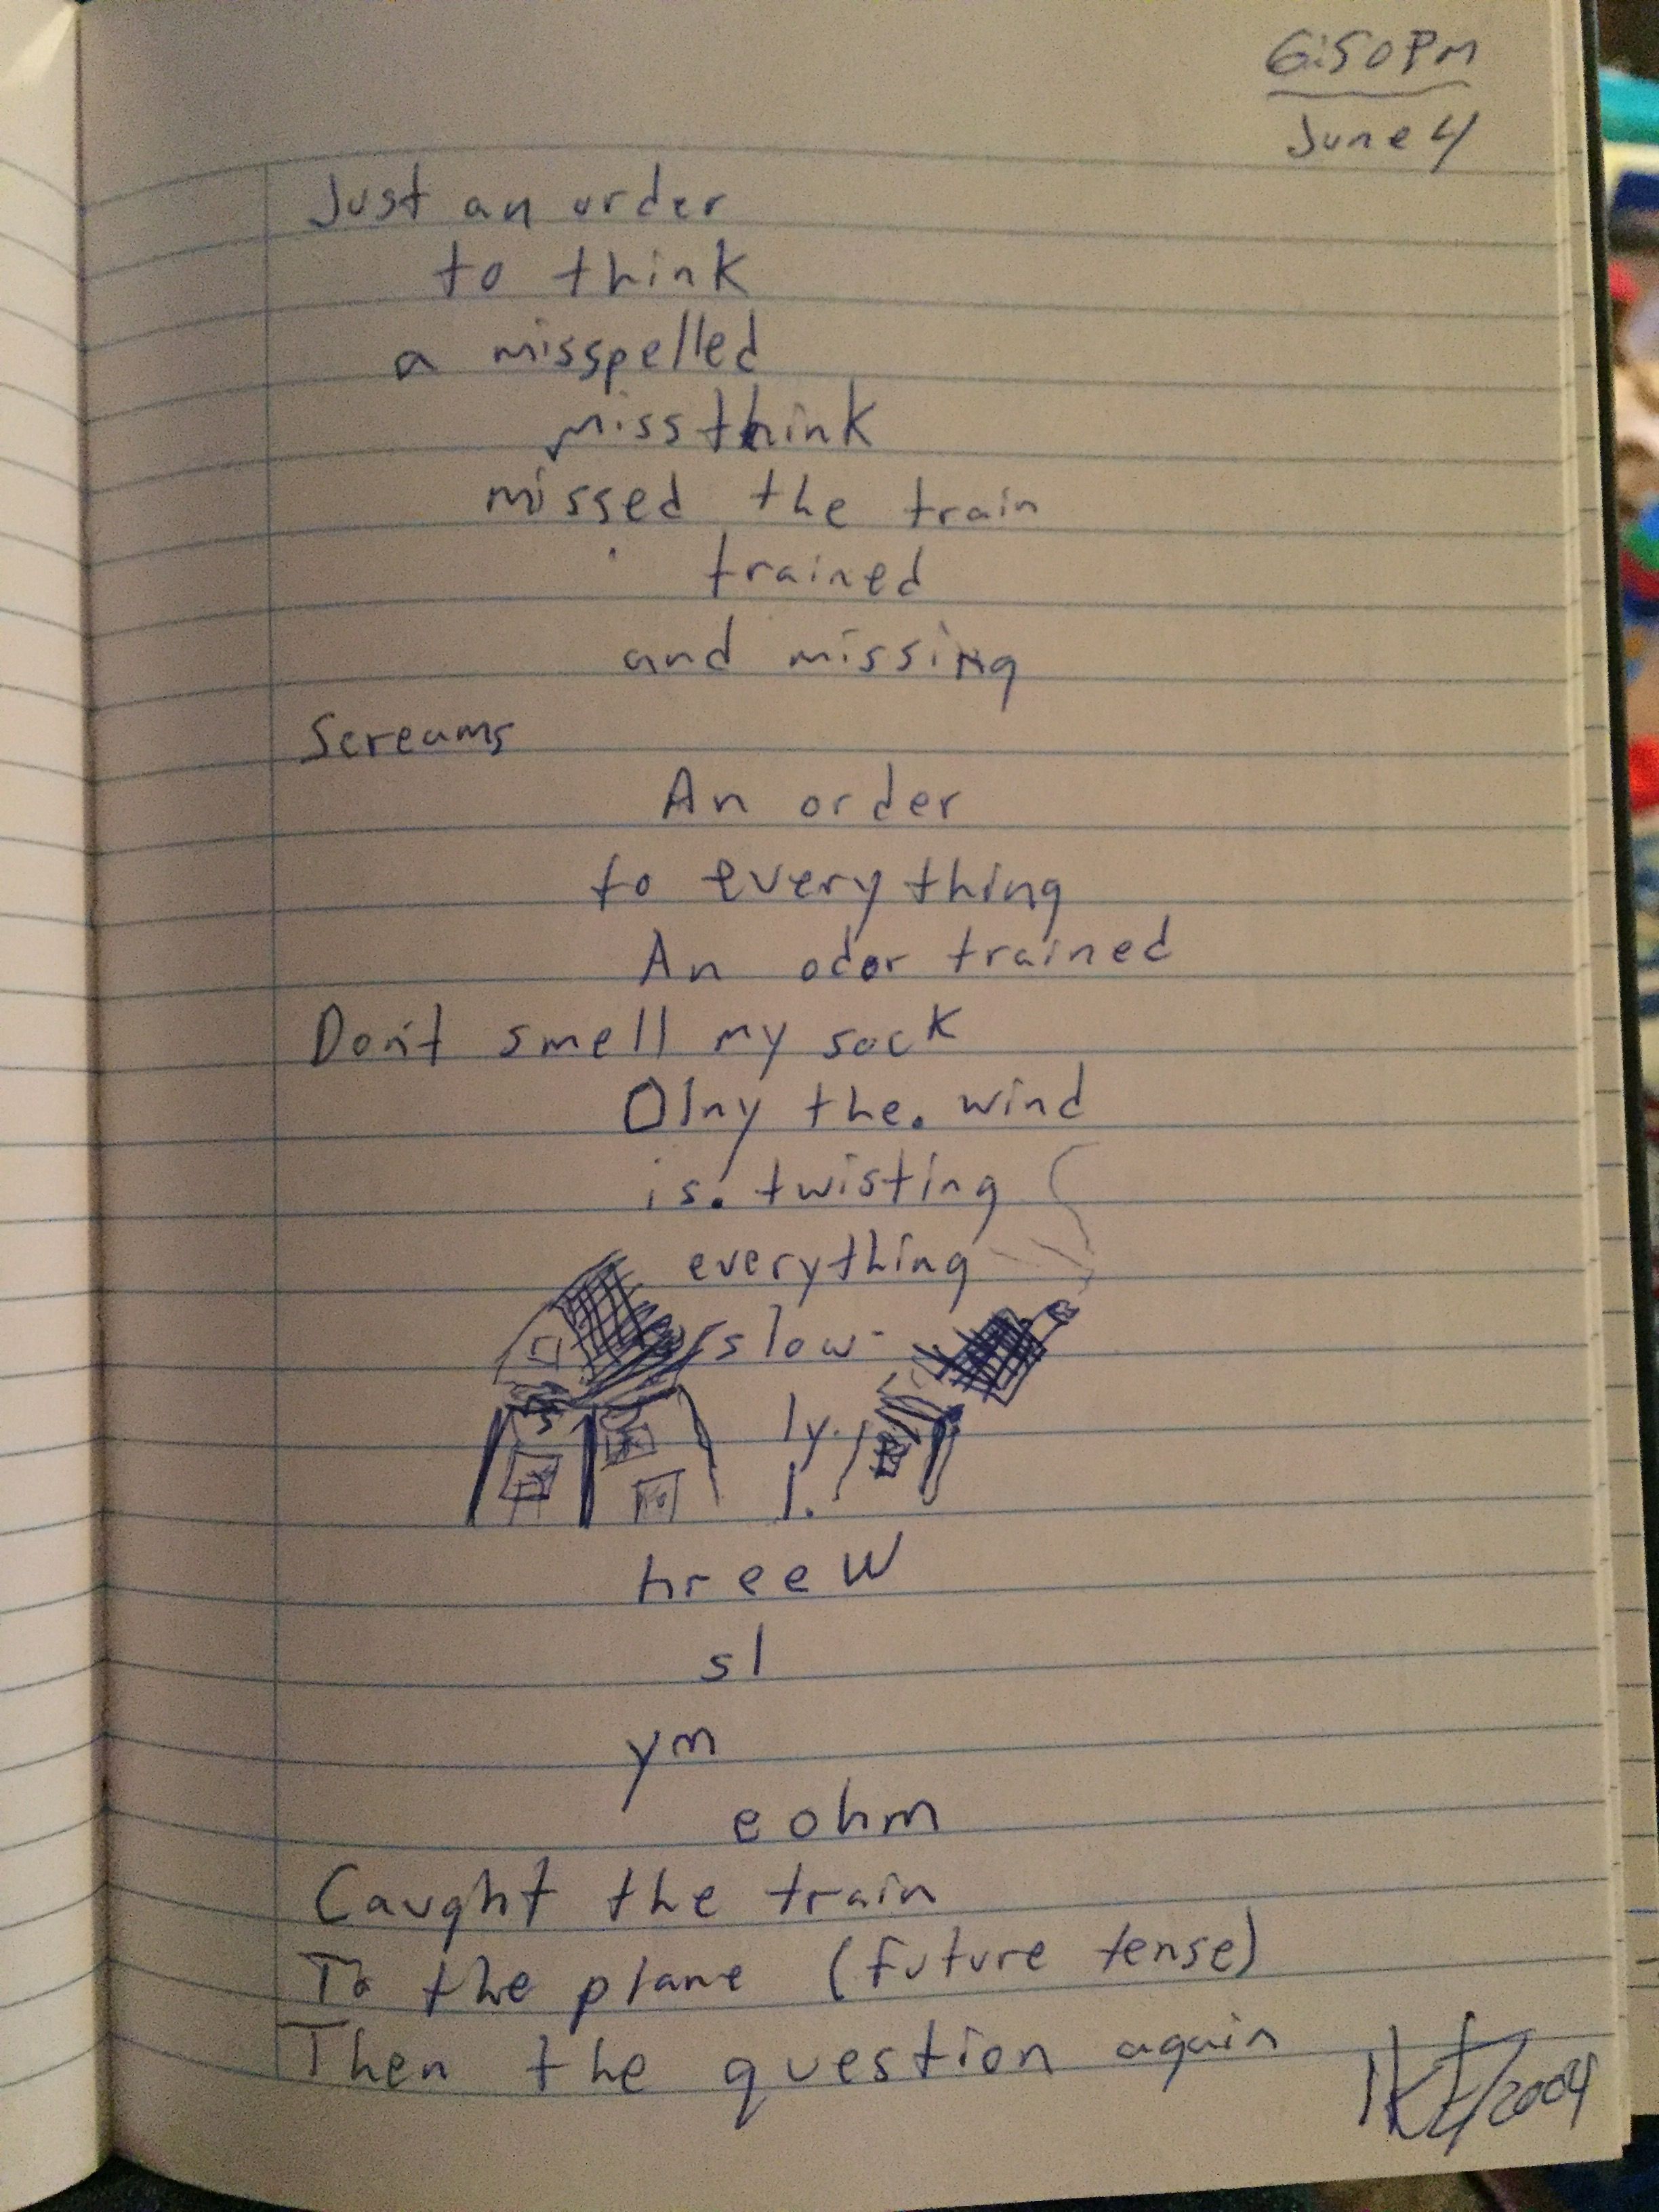 6:50 PM
June 4
Just an order
to think
a misspelled
missthink
missed the train
trained
and missing
Screams
An order
to everything
An odor trained
Don't smell my sock
Olny the. wind
is. twisting
everything
slow-
ly.
l.
hreeW
sl
ym
eohm
Caught the train
To the plane (future tense)
Then the question again
/2004